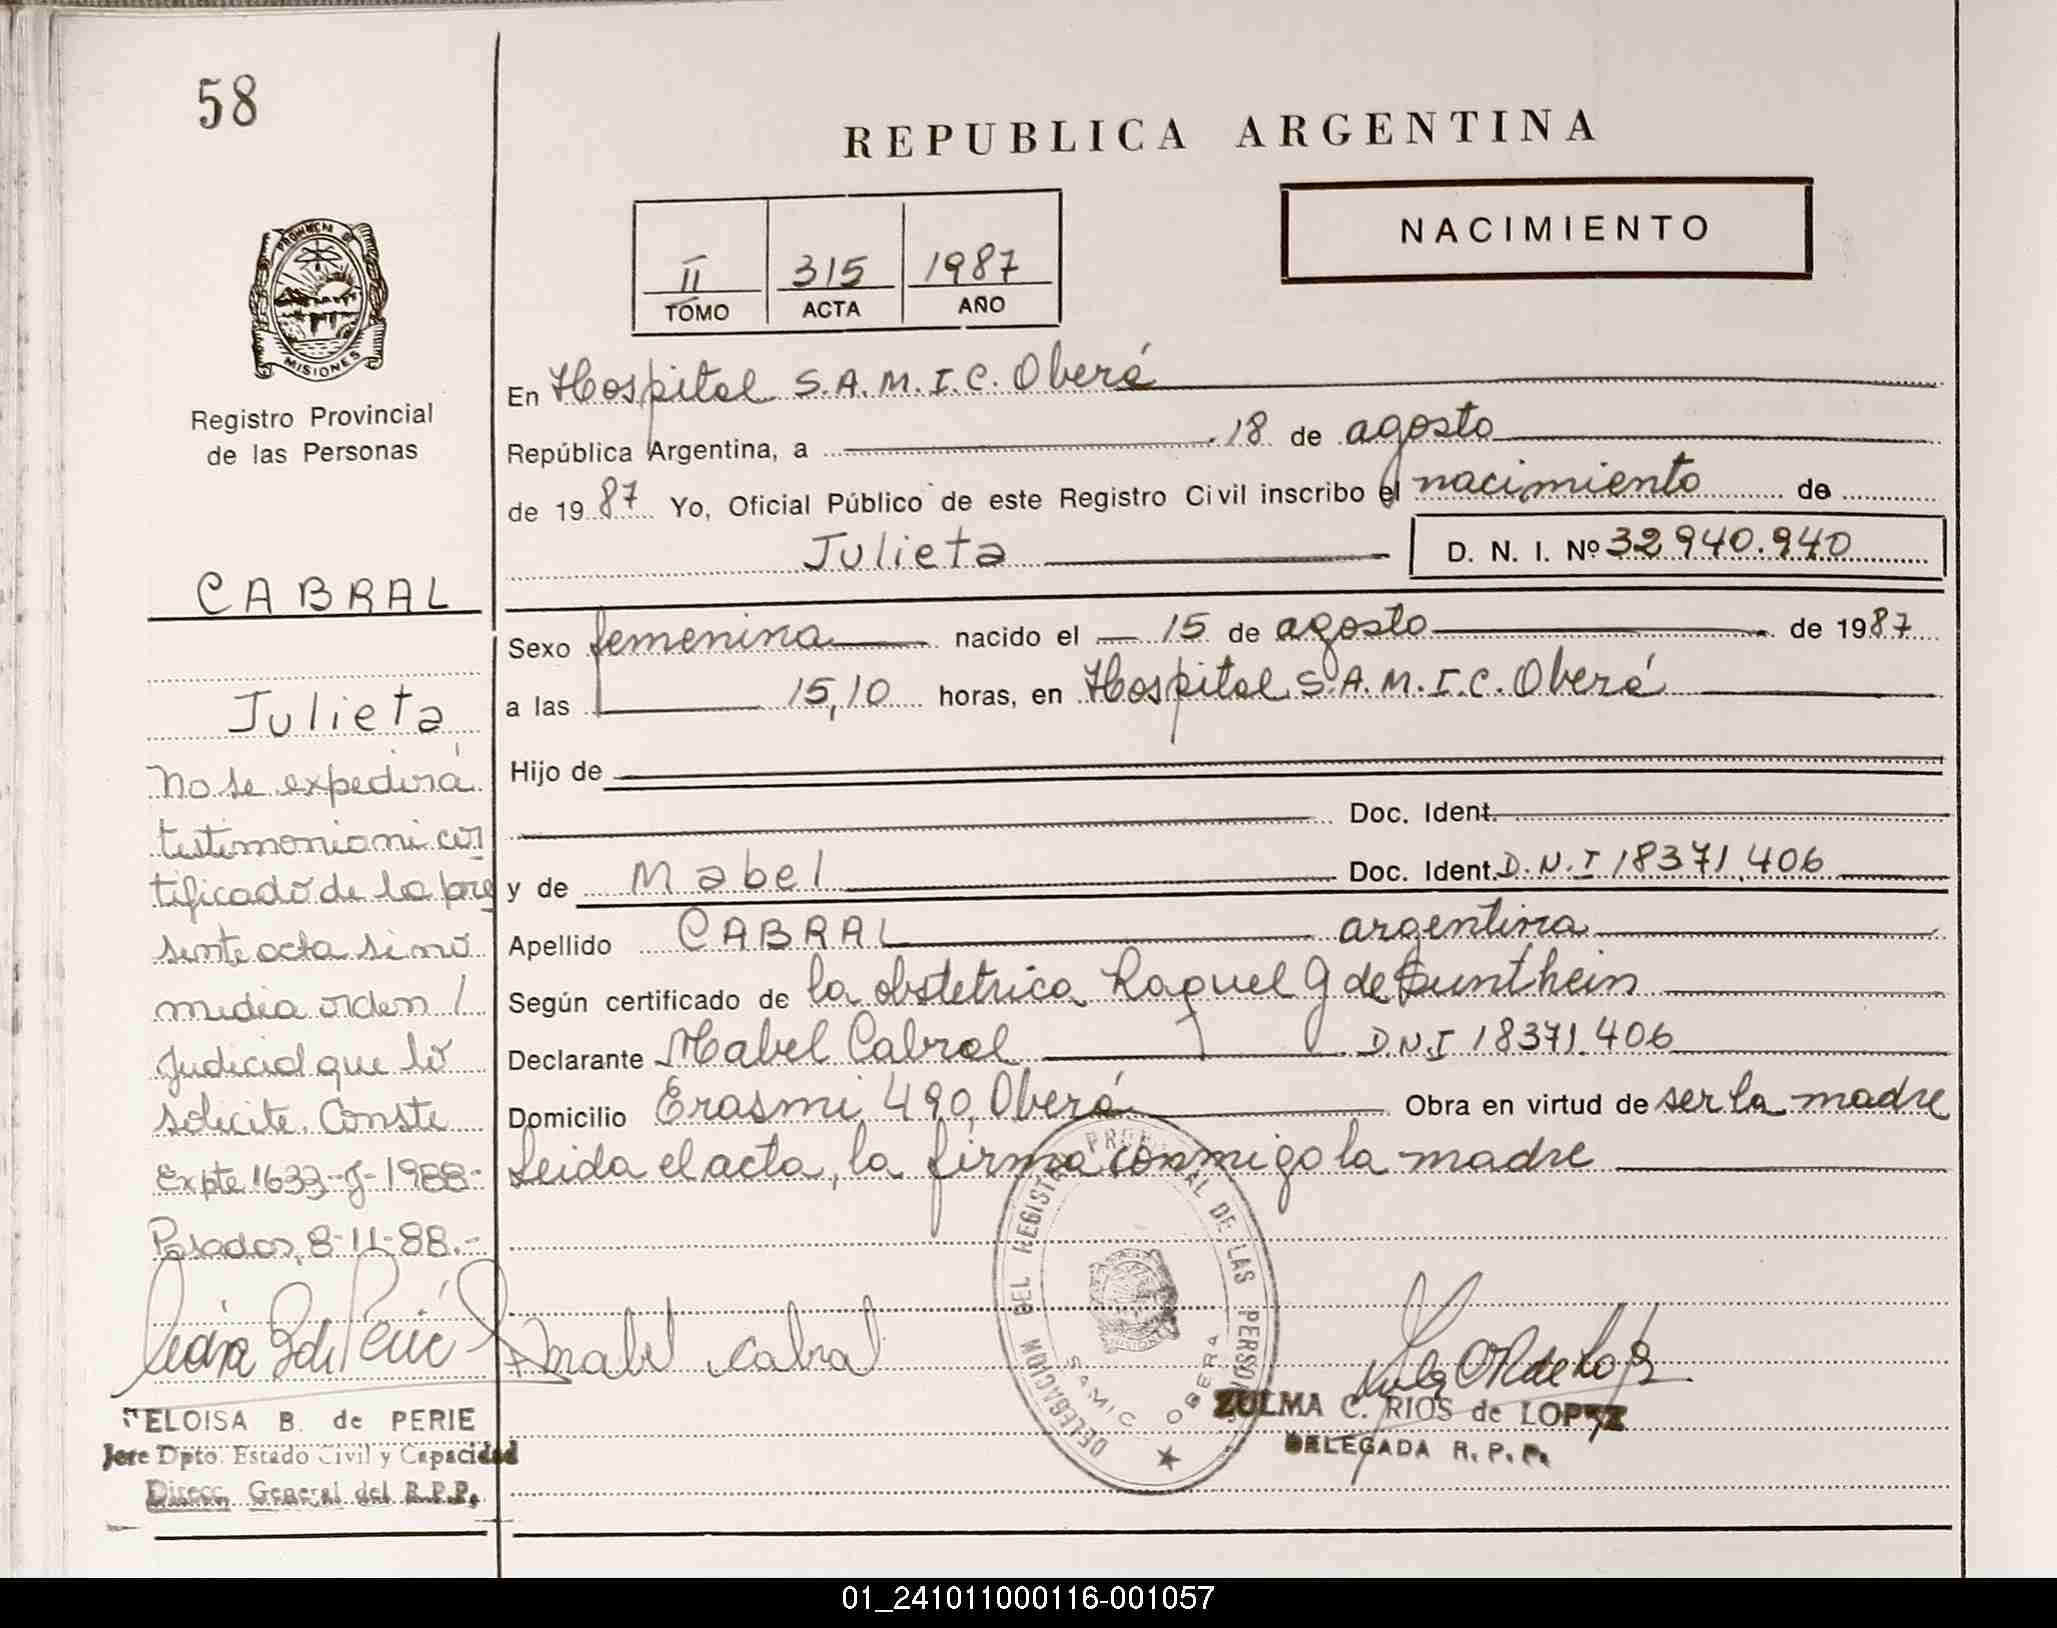 58
REPUBLICA ARGENTINA
NACIMIENTO
II 315 1987
TOMO ACTA AÑO
PROVINCIA DE MISIONES
Registro Provincial
de las Personas
CABRAL
Julieta
No se expedirá
testimonio ni cer
tificado de la pre
sente acta si no
media orden /
Judicial que lo
solicite. Conste
Expte 1633-J-1988-
Posadas, 8-11-88.-
ELOISA B. de PERIE
Jefe Dpto. Estado Civil y Capacidad
Direcc. General del R.P.P.
En Hospital S.A.M.I.C. Oberá
República Argentina, a 18 de agosto
de 1987 Yo, Oficial Público de este Registro Civil inscribo el nacimiento de
Julieta D. N. I. Nº 32 940.940
Sexo femenina nacido el 15 de agosto de 1987
a las 15,10 horas, en Hospital S.A.M.I.C. Oberá
Hijo de
Doc. Ident.
y de Mabel Doc. Ident. D.N.I 18371.406
Apellido CABRAL argentina
Según certificado de la obstetrica Raquel G de
Declarante Mabel Cabral D.N.I 18371.406
Domicilio Erasmi 490, Oberá Obra en virtud de ser la madre
Leida el acta, la firma conmigo la madre
Mabel Cabral
DELEGACION DEL REGISTRO PROVINCIAL DE LAS PERSONAS
SAMIC OBERA
ZULMA C. RIOS de LOPEZ
DELEGADA R. P. P.
01_241011000116-001057